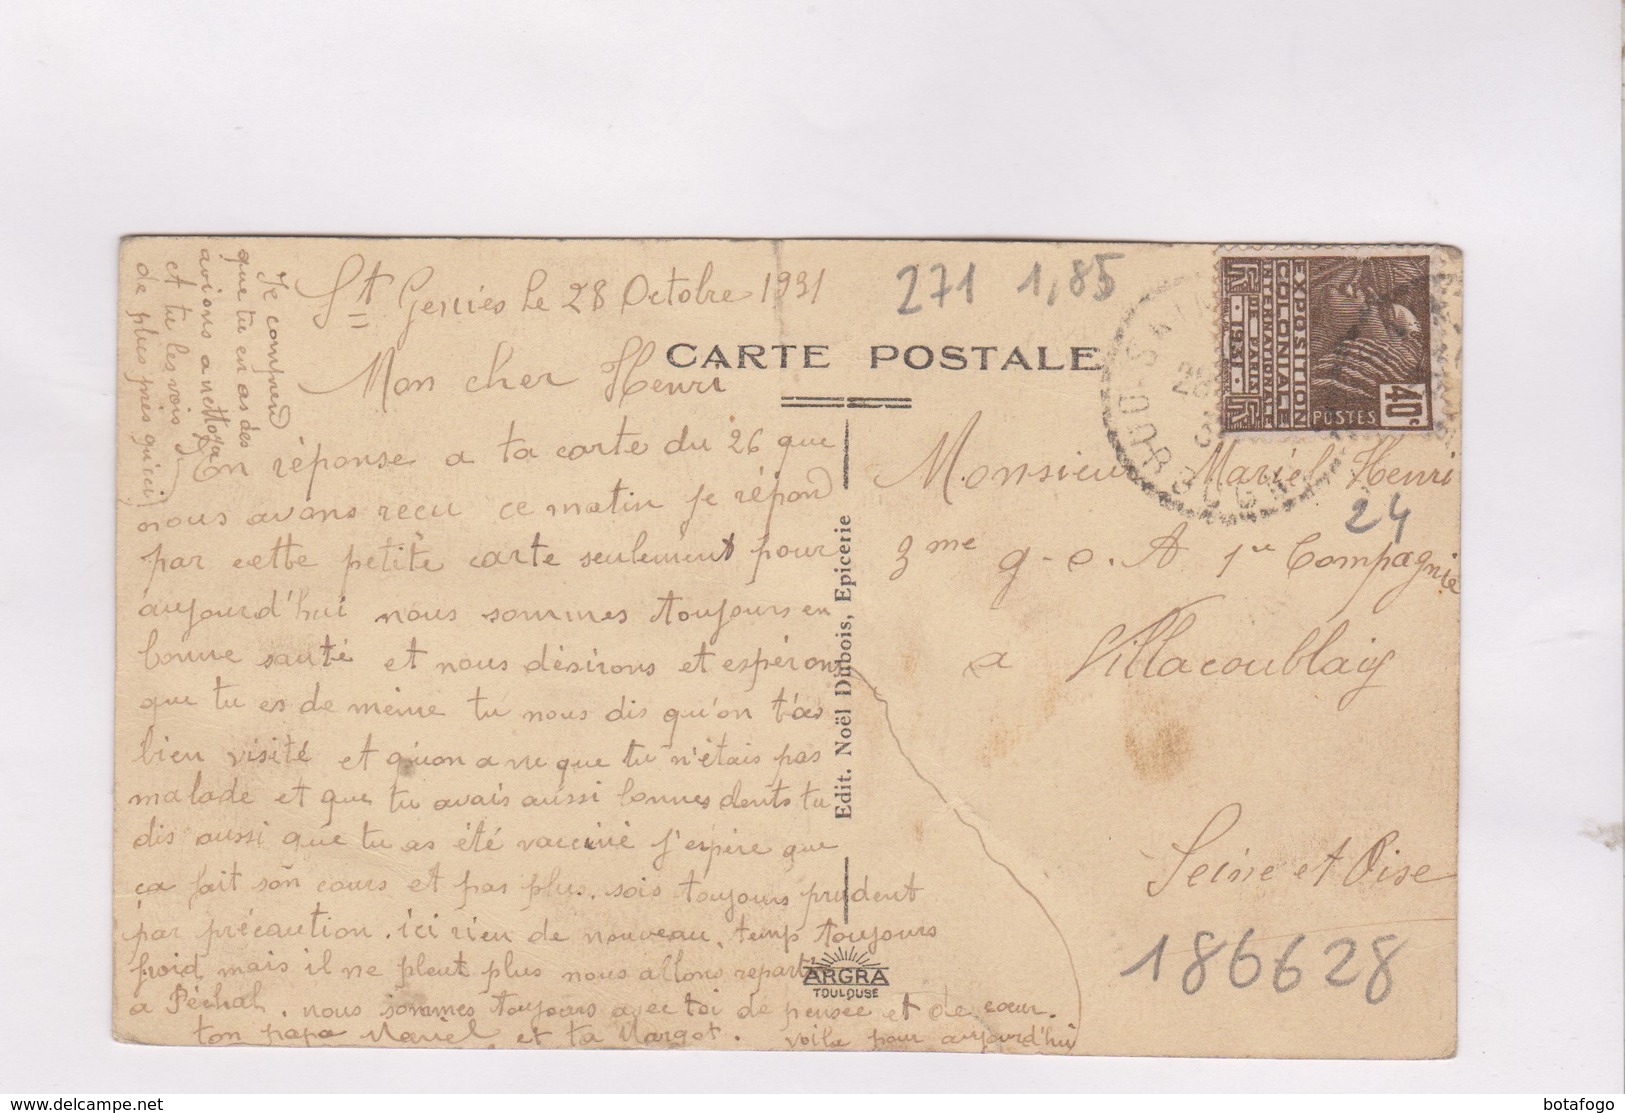 St Geniès le 28 Octobre 1931
Mon cher Henri
En réponse a ta carte du 26 que
nous avons reçu ce matin je répond
par cette petite carte seulement pour
aujourd'hui nous sommes toujours en
bonne santé et nous désirons et espérons
que tu es de même tu nous dis qu'on t'as
bien visité et qu'on a vu que tu n'étais pas
malade et que tu avais aussi bonnes dents tu
dis aussi que tu as été vacciné j'espère que
ça fait son cours et pas plus. sois toujours prudent
par précaution. ici rien de nouveau, temp toujours
froid mais il ne pleut plus nous allons repartir
a Péchal. nous sommes toujours avec toi de pensée et de cœur.
ton papa Mariel et ta Margot. voila pour aujourd'hui
Je comprend
que tu en as des
avions a nettoyer
et tu les vois
de plus près qu'ici
271 1,85
CARTE POSTALE
Edit. Noël Dubois, Epicerie
ARGRA
TOULOUSE
EXPOSITION
COLONIALE
INTERNATIONALE
DE PARIS
1931
POSTES
40c
Monsieur Mariel Henri
24
3me g-o. A 1re Compagnie
a Villacoublay
Seine et Oise
186628
delcampe.net
botafogo